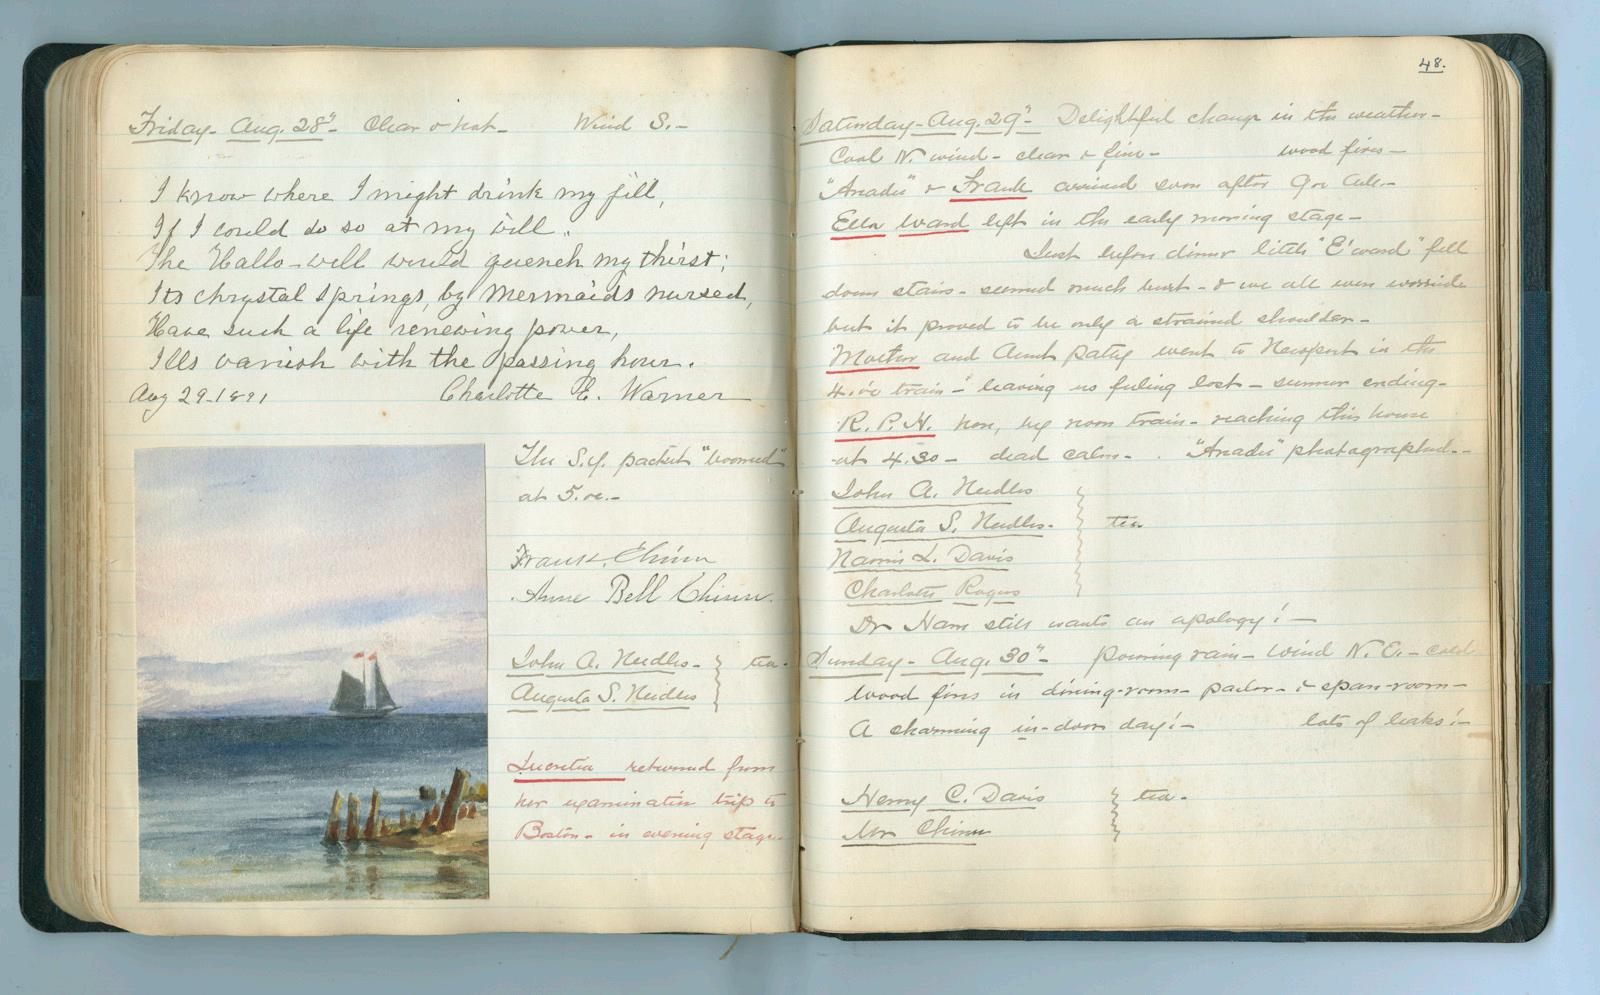 Friday- Aug. 28"- Clear & hot- Wind S.-
I know where I might drink my fill,
If I could do so at my will.
The Hallo-well would quench my thirst;
Its chrystal springs, by Mermaids nursed,
Have such a life renewing power,
Ills vanish with the passing hour.
Aug 29-1891 Charlotte E. Warner
The S.Y. packet "boomed"
at 5.
Frank Chinn
Anne Bell Chinn.
John A. Needles- tea-
Augusta S. Needles
Lucretia returned from
her examination trip to
Boston- in evening stage.
48.
Saturday- Aug. 29"- Delightful change in the weather-
Cool N. wind- clear & fine- wood fires-
& Frank arrived soon after
Ella Ward left in the early morning stage-
Just before dinner little "E'ward" fell
down stairs- seemed much hurt- & we all were
but it proved to be only a strained shoulder-
Mother and Aunt Patty went to Newport in the
train- leaving us feeling lost- summer ending-
R. P. H. here, by noon train- reaching this house
at 4.30- dead calm- photographed--
John A. Needles
Augusta S. Needles- tea
L. Davis
Charlotte Rogers
Dr Ham still wants an apology!-
Sunday- Aug. 30"- pouring rain- Wind N.E.- cold
Wood fires in dining-room- parlor- & spare-room-
A charming in-door day!- lots of leaks!-
Henry C. Davis tea-
Mr Chinn